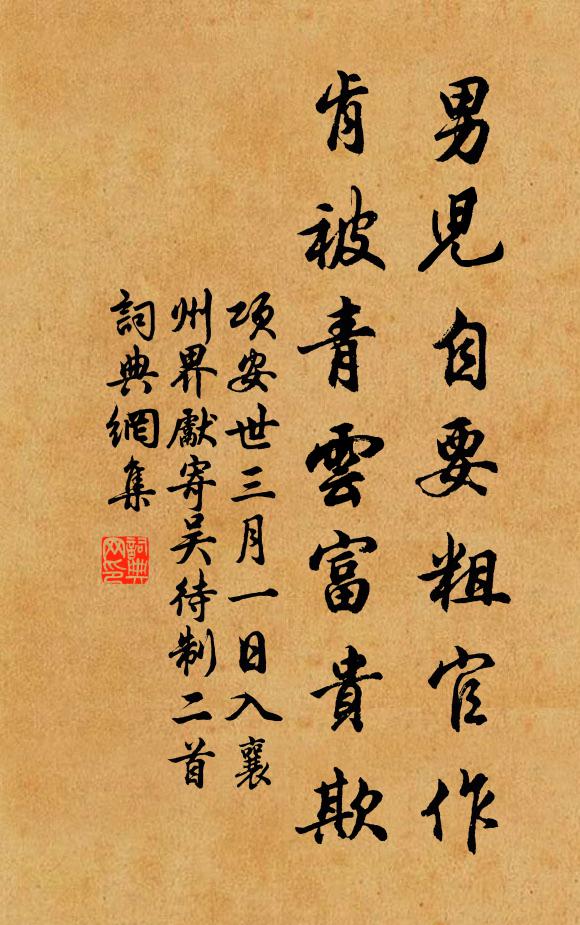 男児自要粗官作
肯被青雲富貴欺
項安世三月一日入襄
州界獻寄吴待制二首
詞典網集
詞典
网印